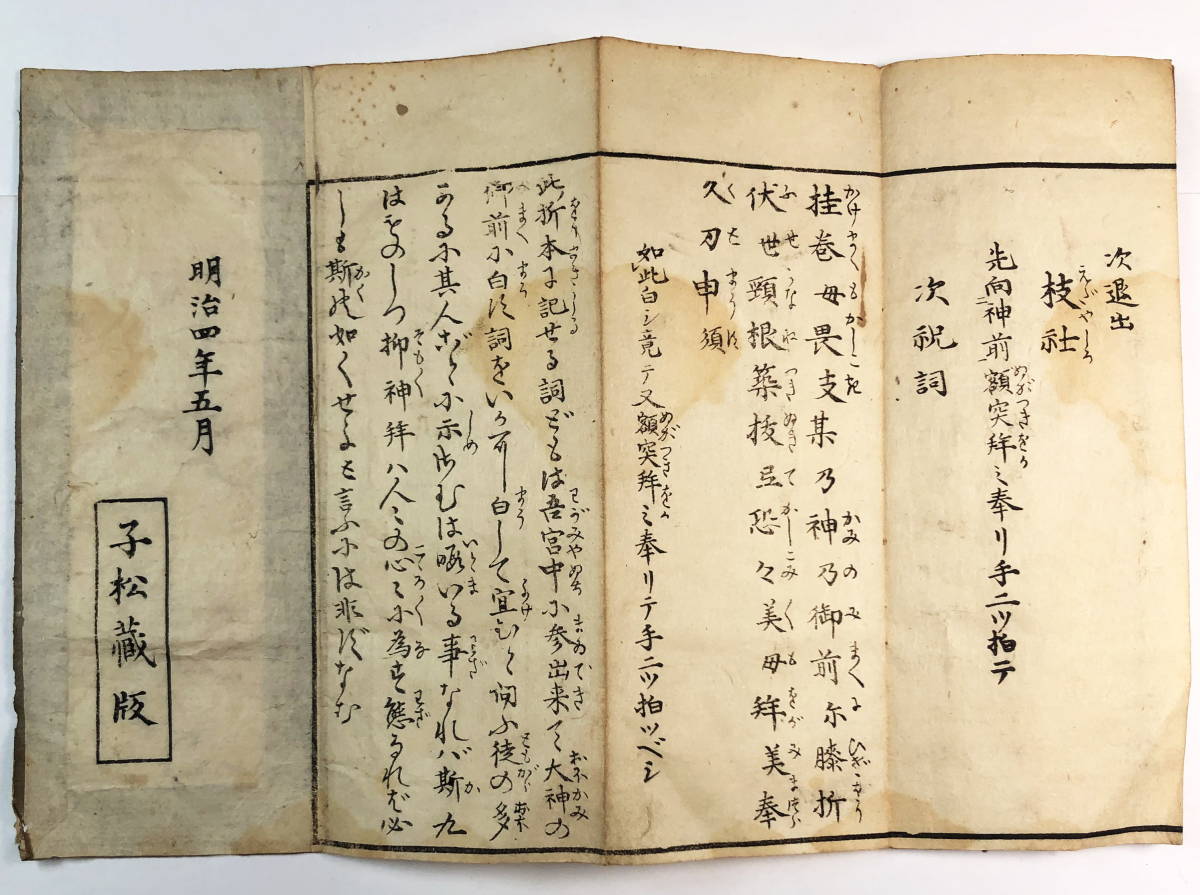 次退出
枝社
えだやしろ
先向神前額突拜ミ奉リ手二ツ拍テ
次祝詞
挂巻毋畏支某乃神乃御前尓膝折
伏世頸根築抜弖恐々美毋拜美奉
久刀申須
如此白シ竟テ又額突拜ミ奉リテ手二ツ拍ツベシ
此折本に記せる詞どもは吾宮中に参出来て大神の
御前に白す詞をいかに白して宜むと問ふ徒の多
かるに其人ごとに示さむは暇いる事なれバ斯九
はものしつ抑神拜ハ人々の心々に為す態なれば必
しも斯の如くせよと言ふには非ずなむ
明治四年五月
子松藏版